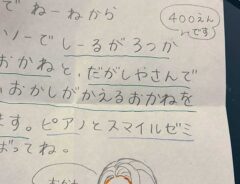 で ねーねから
400えん
です
ソーで しーるがろっか
おかねと、だがしやさんで
おかしがかえるおかねを
ます。ピアノとスマイルゼミ
ばってね。
おかね